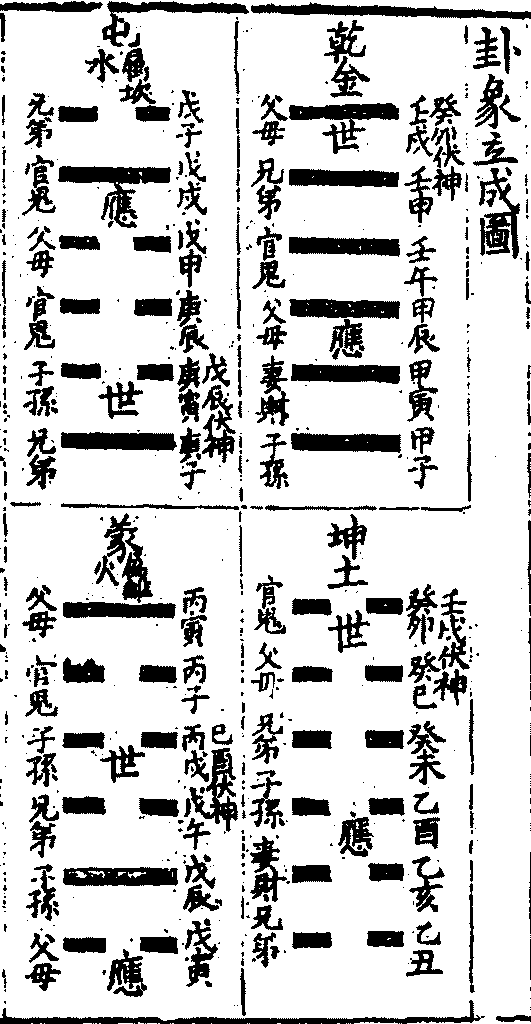 卦象立成圖
乾金
父母 世 壬戌 癸卯伏神
兄弟 壬申
官鬼 壬午
父母 應 甲辰
妻財 甲寅
子孫 甲子
坤土
官鬼 世 癸卯 壬戌伏神
父母 癸巳
兄弟 癸未
子孫 應 乙酉
妻財 乙亥
兄弟 乙丑
屯水 屬坎
兄弟 戊子
官鬼 應 戊戌
父母 戊申
官鬼 庚辰
子孫 世 庚寅 戊辰伏神
兄弟 庚子
蒙火 屬離
父母 丙寅
官鬼 丙子
子孫 世 丙戌 己酉伏神
兄弟 戊午
子孫 戊辰
父母 應 戊寅